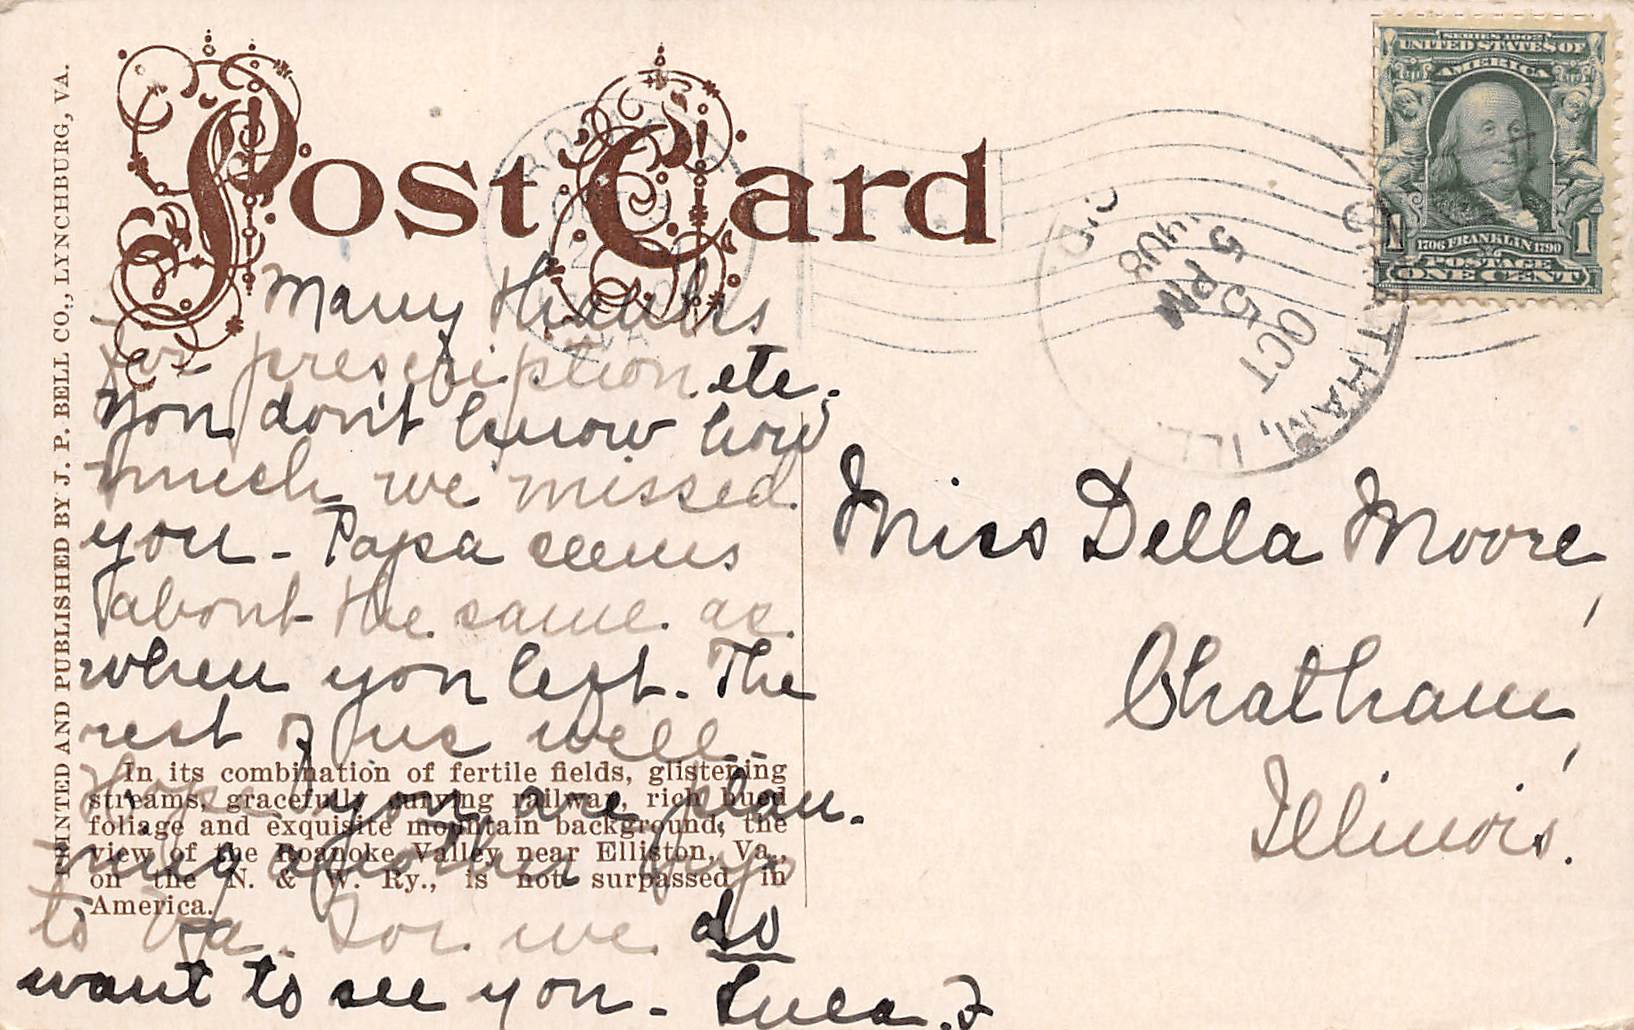 PRINTED AND PUBLISHED BY J. P. BELL CO., LYNCHBURG, VA.
Post Card
SERIES 1902
UNITED STATES OF
AMERICA
1706 FRANKLIN 1790
POSTAGE
1 1
ONE CENT
CHATHAM, ILL.
OCT
5
5 PM
1908
REC'D
Many thanks
for prescription etc.
You don't know how
much we missed
you - Papa seems
about the same as
when you left. The
rest of us well -
Hope you are plan-
ning another trip
to Va. For we do
want to see you - Luca. F
In its combination of fertile fields, glistening
streams, gracefully curving railway, rich hued
foliage and exquisite mountain background, the
view of the Roanoke Valley near Elliston, Va.,
on the N. & W. Ry., is not surpassed in
America.
Miss Della Moore,
Chatham,
Illinois.